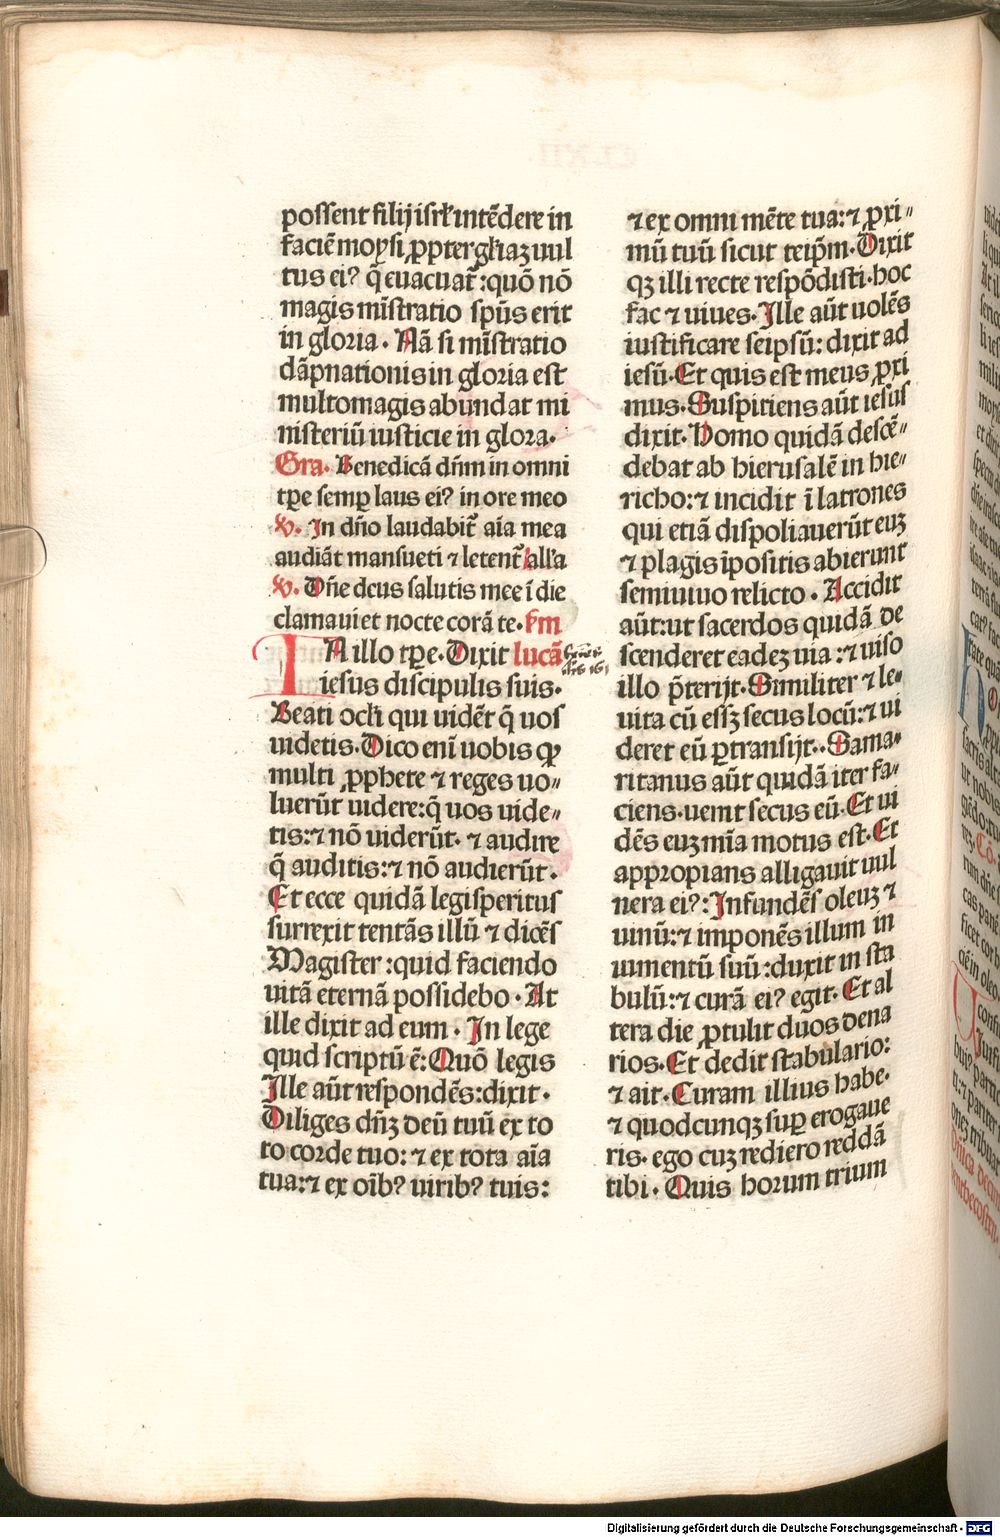 possent filij isrł intēdere in
faciē moysi ꝓpter głiaꝫ vul
tus eiꝰ q̄ euacuat᷑: quō nō
magis mīstratio spūs erit
in gloria. Nā si mīstratio
dāpnationis in gloria est
multomagis abundat mi
nisteriū iusticie in glora.
Gra. Benedicā dn̄m in omni
tꝑe semꝑ laus eiꝰ in ore meo
v. In dn̄o laudabit᷑ aīa mea
audiāt mansueti ⁊ letent᷑ alľa
v. Dn̄e deus salutis mee ī die
clamaui et nocte corā te. km
IN illo tꝑe. Dixit lucā
iesus discipulis suis.
Beati ocłi qui uidēt q̄ uos
uidetis. Dico enī uobis ꝙ
multi ꝓphete ⁊ reges uo⸗
luerūt uidere: q̄ uos uide⸗
tis: ⁊ nō uiderūt. ⁊ audire
q̄ auditis: ⁊ nō audierūt.
Et ecce quidā legisperitus
surrexit tentās illū ⁊ dicēs
Magister: quid faciendo
uitā eternā possidebo. At
ille dixit ad eum. In lege
quid scriptū ē: Quō legis
Ille aūt respondēs: dixit.
Diliges dn̄ꝫ deū tuū ex to
to corde tuo: ⁊ ex tota aīa
tua: ⁊ ex oībꝰ uiribꝰ tuis:
⁊ ex omni mēte tua: ⁊ ꝓxi⸗
mū tuū sicut teip̄m. Dixit
qꝫ illi recte respōdisti. hoc
fac ⁊ uiues. Ille aūt uolēs
iustificare seipsū: dixit ad
iesū. Et quis est meus ꝓxi
mus. Suspitiens aūt iesus
dixit. Homo quidā descē⸗
debat ab hierusalē in hie⸗
richo: ⁊ incidit ī latrones
qui etiā dispoliauerūt euꝫ
⁊ plagis īpositis abierunt
semiuiuo relicto. Accidit
aūt: ut sacerdos quidā de
scenderet eadeꝫ uia: ⁊ uiso
illo p̄terijt. Similiter ⁊ le⸗
uita cū essꝫ secus locū: ⁊ ui
deret eū ꝑtransijt.. Sama⸗
ritanus aūt quidā iter fa⸗
ciens. uenit secus eū. Et ui
dēs euꝫ mīa motus est. Et
appropians alligauit uul
nera eiꝰ: Infundēs oleuꝫ ⁊
uinū: ⁊ imponēs illum in
iumentū suū: duxit in sta
bulū: ⁊ curā eiꝰ egit. Et al
tera die ꝓtulit duos dena
rios. Et dedit stabulario:
⁊ ait. Curam illius habe.
⁊ quodcunqꝫ suꝑ erogaue
ris. ego cuꝫ rediero reddā
tibi. Quis horum trium
Digitalisierung gefördert durch die Deutsche Forschungsgemeinschaft - DFG